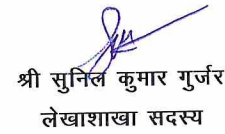 श्री सुनिल कुमार गुर्जर
लेखाशाखा सदस्य